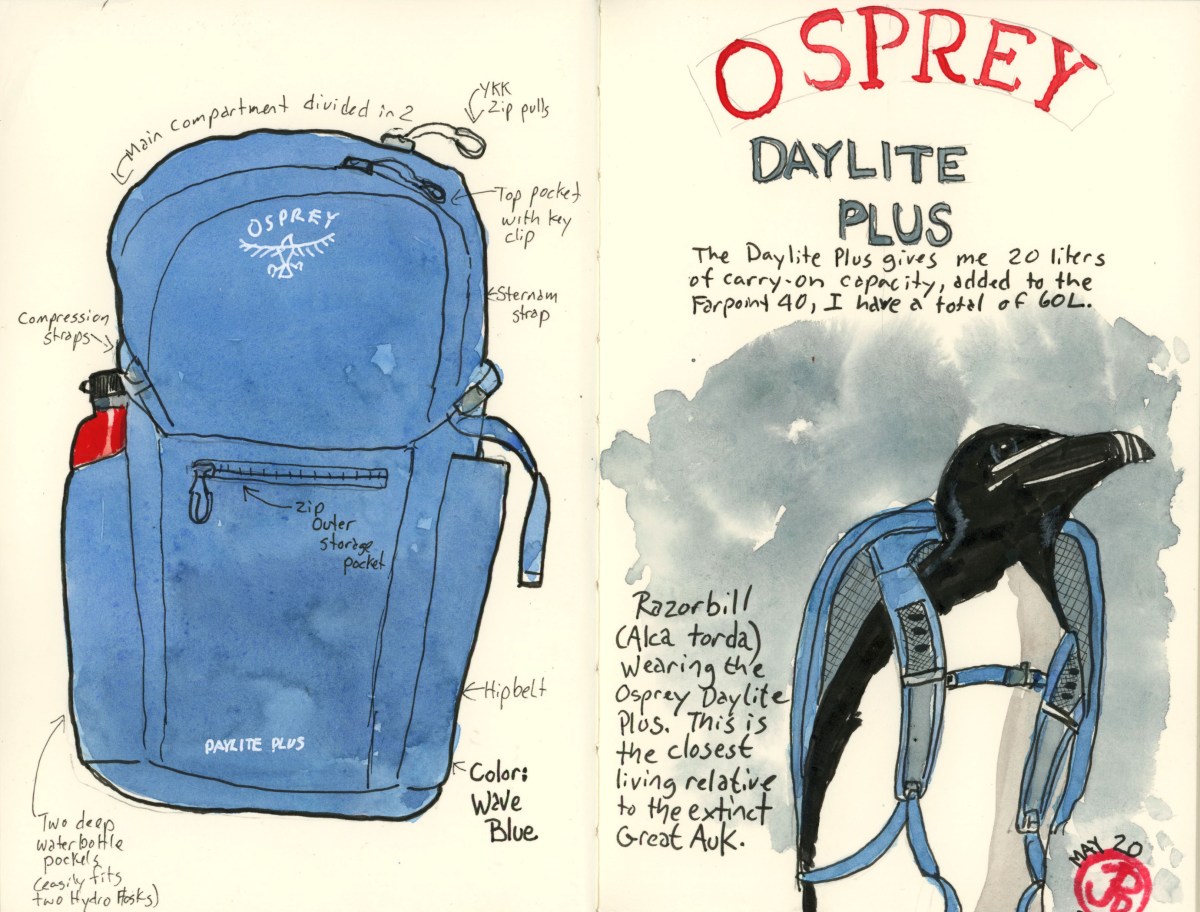 Main compartment divided in 2
YKK
Zip pulls
Top pocket
with key
clip
Sternam
strap
Compression
straps
OSPREY
zip
outer
storage
pocket
Hipbelt
DAYLITE PLUS
Color:
Wave
Blue
Two deep
waterbottle
pockets
(easily fits
two Hydro Flasks)
OSPREY
DAYLITE
PLUS
The Daylite Plus gives me 20 liters
of carry-on capacity, added to the
Farpoint 40, I have a total of 60L.
Razorbill
(Alca torda)
Wearing the
Osprey Daylite
Plus. This is
the closest
living relative
to the extinct
Great Auk.
MAY 20